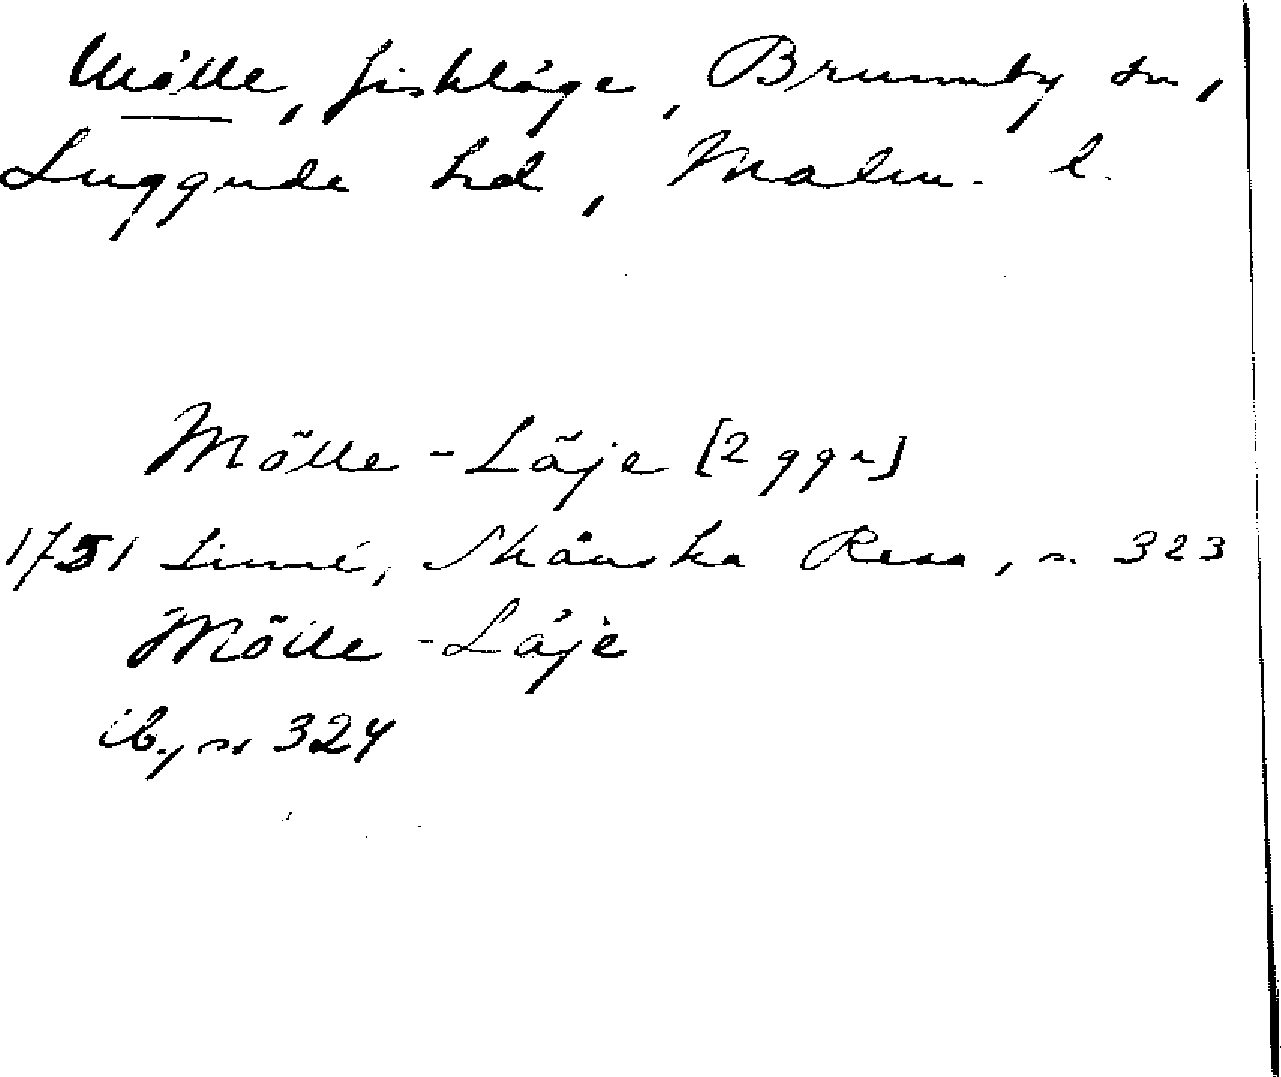 Mölle, fiskläge, Brunnby sn,
Luggude hd, Malm. l.
Mölle-Läje [2 ggr]
1751 Linné, Skånska Resa, s. 323
Mölle-Läje
ib., s. 324